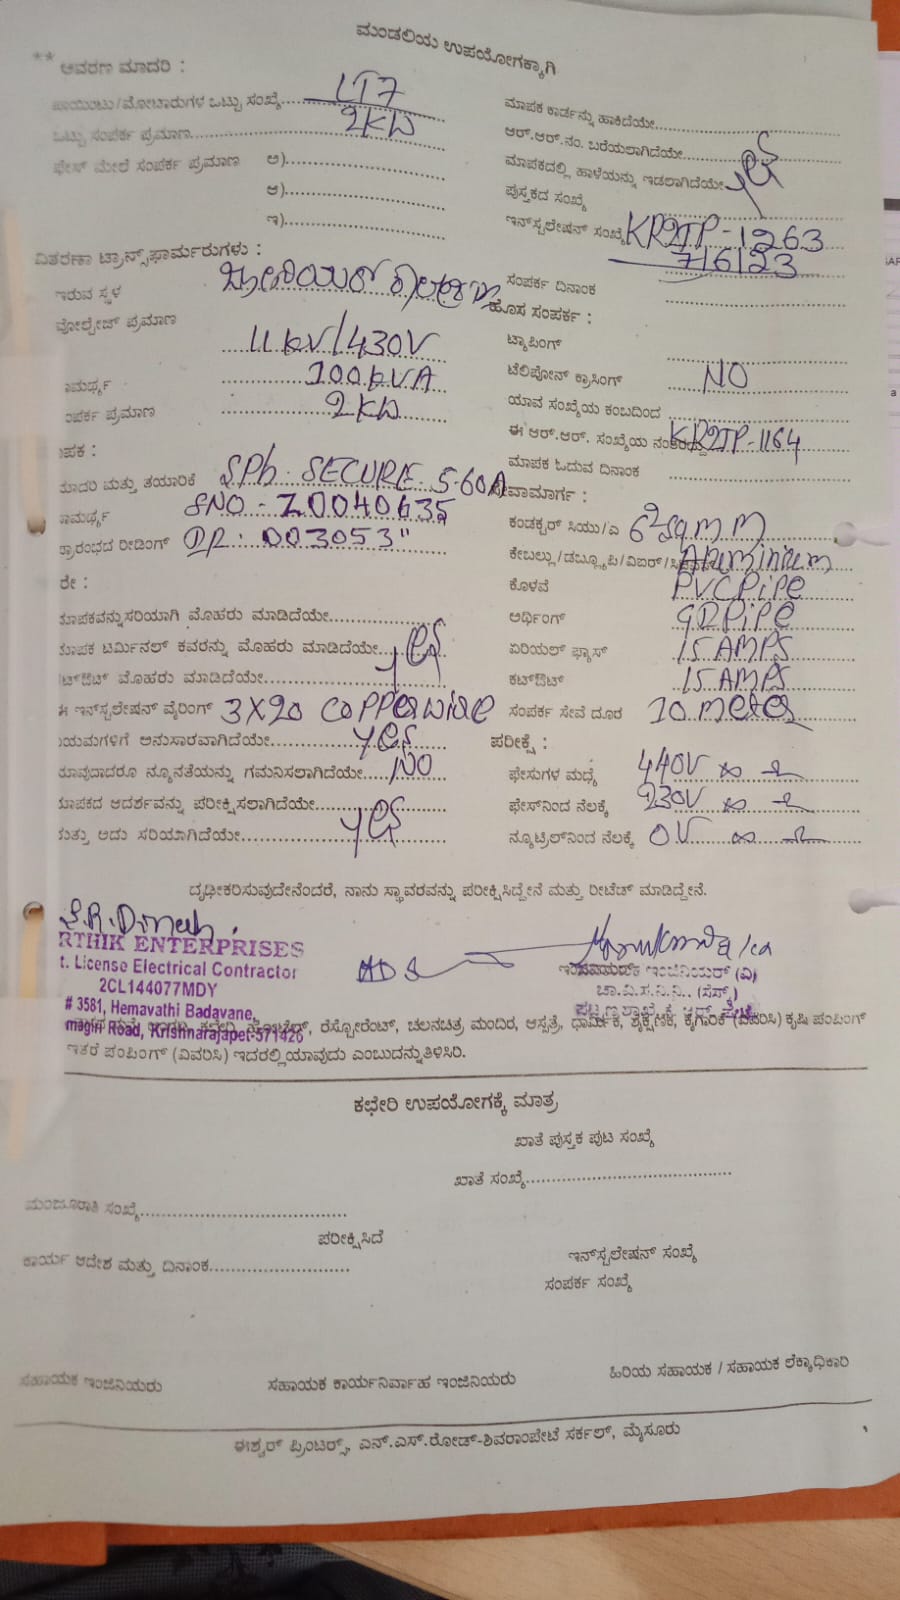 ಮಂಡಲಿಯ ಉಪಯೋಗಕ್ಕಾಗಿ
** ಆವರಣ ಮಾದರಿ :
ಪಾಯಿಂಟು/ಮೋಟಾರುಗಳ ಒಟ್ಟು ಸಂಖ್ಯೆ.... LT7
ಒಟ್ಟು ಸಂಪರ್ಕ ಪ್ರಮಾಣ.... 2KW
ಫೇಸ್ ಮೇಲೆ ಸಂಪರ್ಕ ಪ್ರಮಾಣ ಅ)....
ಆ)....
ಇ)....
ವಿತರಣಾ ಟ್ರಾನ್ಸ್‌ಫಾರ್ಮರುಗಳು :
ಇರುವ ಸ್ಥಳ
ವೋಲ್ಟೇಜ್ ಪ್ರಮಾಣ 11 kV/430V
ಾಮರ್ಥ್ಯ 100kVA
ಂಪರ್ಕ ಪ್ರಮಾಣ 2KW
ಾಪಕ :
ಾದರಿ ಮತ್ತು ತಯಾರಿಕೆ SPh. SECURE 5-60A
ಾಮರ್ಥ್ಯ SNO - Z0040635
ಪ್ರಾರಂಭದ ರೀಡಿಂಗ್ IR: 003053"
ರೇ :
ಾಪಕವನ್ನು ಸರಿಯಾಗಿ ಮೊಹರು ಮಾಡಿದೆಯೇ....
ಾಪಕ ಟರ್ಮಿನಲ್ ಕವರನ್ನು ಮೊಹರು ಮಾಡಿದೆಯೇ.. yes
ಟ್‌ಔಟ್ ಮೊಹರು ಮಾಡಿದೆಯೇ....
ಈ ಇನ್‌ಸ್ಟಲೇಷನ್ ವೈರಿಂಗ್ 3X20 COPPER WIRE
ಯಮಗಳಿಗೆ ಅನುಸಾರವಾಗಿದೆಯೇ.... yes
ಯಾವುದಾದರೂ ನ್ಯೂನತೆಯನ್ನು ಗಮನಿಸಲಾಗಿದೆಯೇ.... NO
ಾಪಕದ ಆದರ್ಶವನ್ನು ಪರೀಕ್ಷಿಸಲಾಗಿದೆಯೇ....
ಮತ್ತು ಅದು ಸರಿಯಾಗಿದೆಯೇ.... yes
ಮಾಪಕ ಕಾರ್ಡನ್ನು ಹಾಕಿದೆಯೇ....
ಆರ್.ಆರ್.ನಂ. ಬರೆಯಲಾಗಿದೆಯೇ....
ಮಾಪಕದಲ್ಲಿ ಹಾಳೆಯನ್ನು ಇಡಲಾಗಿದೆಯೇ yes
ಪುಸ್ತಕದ ಸಂಖ್ಯೆ
ಇನ್‌ಸ್ಟಲೇಷನ್ ಸಂಖ್ಯೆ KR2TP-1263
7/6/23
ಸಂಪರ್ಕ ದಿನಾಂಕ
ಹೊಸ ಸಂಪರ್ಕ :
ಟ್ಯಾಪಿಂಗ್
ಟೆಲಿಪೋನ್ ಕ್ರಾಸಿಂಗ್ NO
ಯಾವ ಸಂಖ್ಯೆಯ ಕಂಬದಿಂದ
ಈ ಆರ್.ಆರ್. ಸಂಖ್ಯೆಯ ನಂತರದ್ದು KR2TP-1164
ಮಾಪಕ ಓದುವ ದಿನಾಂಕ
ಸೇವಾಮಾರ್ಗ :
ಕಂಡಕ್ಟರ್ ಸಿಯು/ಎ 6² sq.mm
ಕೇಬಲ್ಲು/ಡಬ್ಲ್ಯೂಪಿ/ವಿಐರ್/ Aluminium
ಕೊಳವೆ PVC PiPe
ಅರ್ಥಿಂಗ್ GI PiPe
ಏರಿಯಲ್ ಫ್ಯೂಸ್ 15 AMPS
ಕಟ್‌ಔಟ್ 15 AMPS
ಸಂಪರ್ಕ ಸೇವೆ ದೂರ 10 meter
ಪರೀಕ್ಷೆ :
ಫೇಸುಗಳ ಮಧ್ಯೆ 440V
ಫೇಸ್‌ನಿಂದ ನೆಲಕ್ಕೆ 230V
ನ್ಯೂಟ್ರಲ್‌ನಿಂದ ನೆಲಕ್ಕೆ 0V
ದೃಢೀಕರಿಸುವುದೇನೆಂದರೆ, ನಾನು ಸ್ಥಾವರವನ್ನು ಪರೀಕ್ಷಿಸಿದ್ದೇನೆ ಮತ್ತು ರೀಟೆಡ್ ಮಾಡಿದ್ದೇನೆ.
RTHIK ENTERPRISES
t. License Electrical Contractor
2CL144077MDY
# 3581, Hemavathi Badavane,
magiri Road, Krishnarajapet-571426
ಇಂಜಿನಿಯರ್ (ವಿ)
ಚಾ.ವಿ.ಸ.ನಿ.ನಿ., (ಸೆಸ್ಕ್)
ರೆಸ್ಟೋರೆಂಟ್, ಚಲನಚಿತ್ರ ಮಂದಿರ, ಆಸ್ಪತ್ರೆ, ಧಾರ್ಮಿಕ, ಶೈಕ್ಷಣಿಕ, ಕೈಗಾರಿಕೆ (ವಿವರಿಸಿ) ಕೃಷಿ ಪಂಪಿಂಗ್
ಇತರೆ ಪಂಪಿಂಗ್ (ವಿವರಿಸಿ) ಇದರಲ್ಲಿ ಯಾವುದು ಎಂಬುದನ್ನು ತಿಳಿಸಿರಿ.
ಕಛೇರಿ ಉಪಯೋಗಕ್ಕೆ ಮಾತ್ರ
ಖಾತೆ ಪುಸ್ತಕ ಪುಟ ಸಂಖ್ಯೆ
ಖಾತೆ ಸಂಖ್ಯೆ....
ಮಂಜೂರಾತಿ ಸಂಖ್ಯೆ....
ಪರೀಕ್ಷಿಸಿದೆ
ಕಾರ್ಯ ಆದೇಶ ಮತ್ತು ದಿನಾಂಕ....
ಇನ್‌ಸ್ಟಲೇಷನ್ ಸಂಖ್ಯೆ
ಸಂಪರ್ಕ ಸಂಖ್ಯೆ
ಸಹಾಯಕ ಇಂಜಿನಿಯರು
ಸಹಾಯಕ ಕಾರ್ಯನಿರ್ವಾಹ ಇಂಜಿನಿಯರು
ಹಿರಿಯ ಸಹಾಯಕ / ಸಹಾಯಕ ಲೆಕ್ಕಾಧಿಕಾರಿ
ಈಶ್ವರ್ ಪ್ರಿಂಟರ್ಸ್, ಎನ್.ಎಸ್.ರೋಡ್-ಶಿವರಾಂಪೇಟೆ ಸರ್ಕಲ್, ಮೈಸೂರು